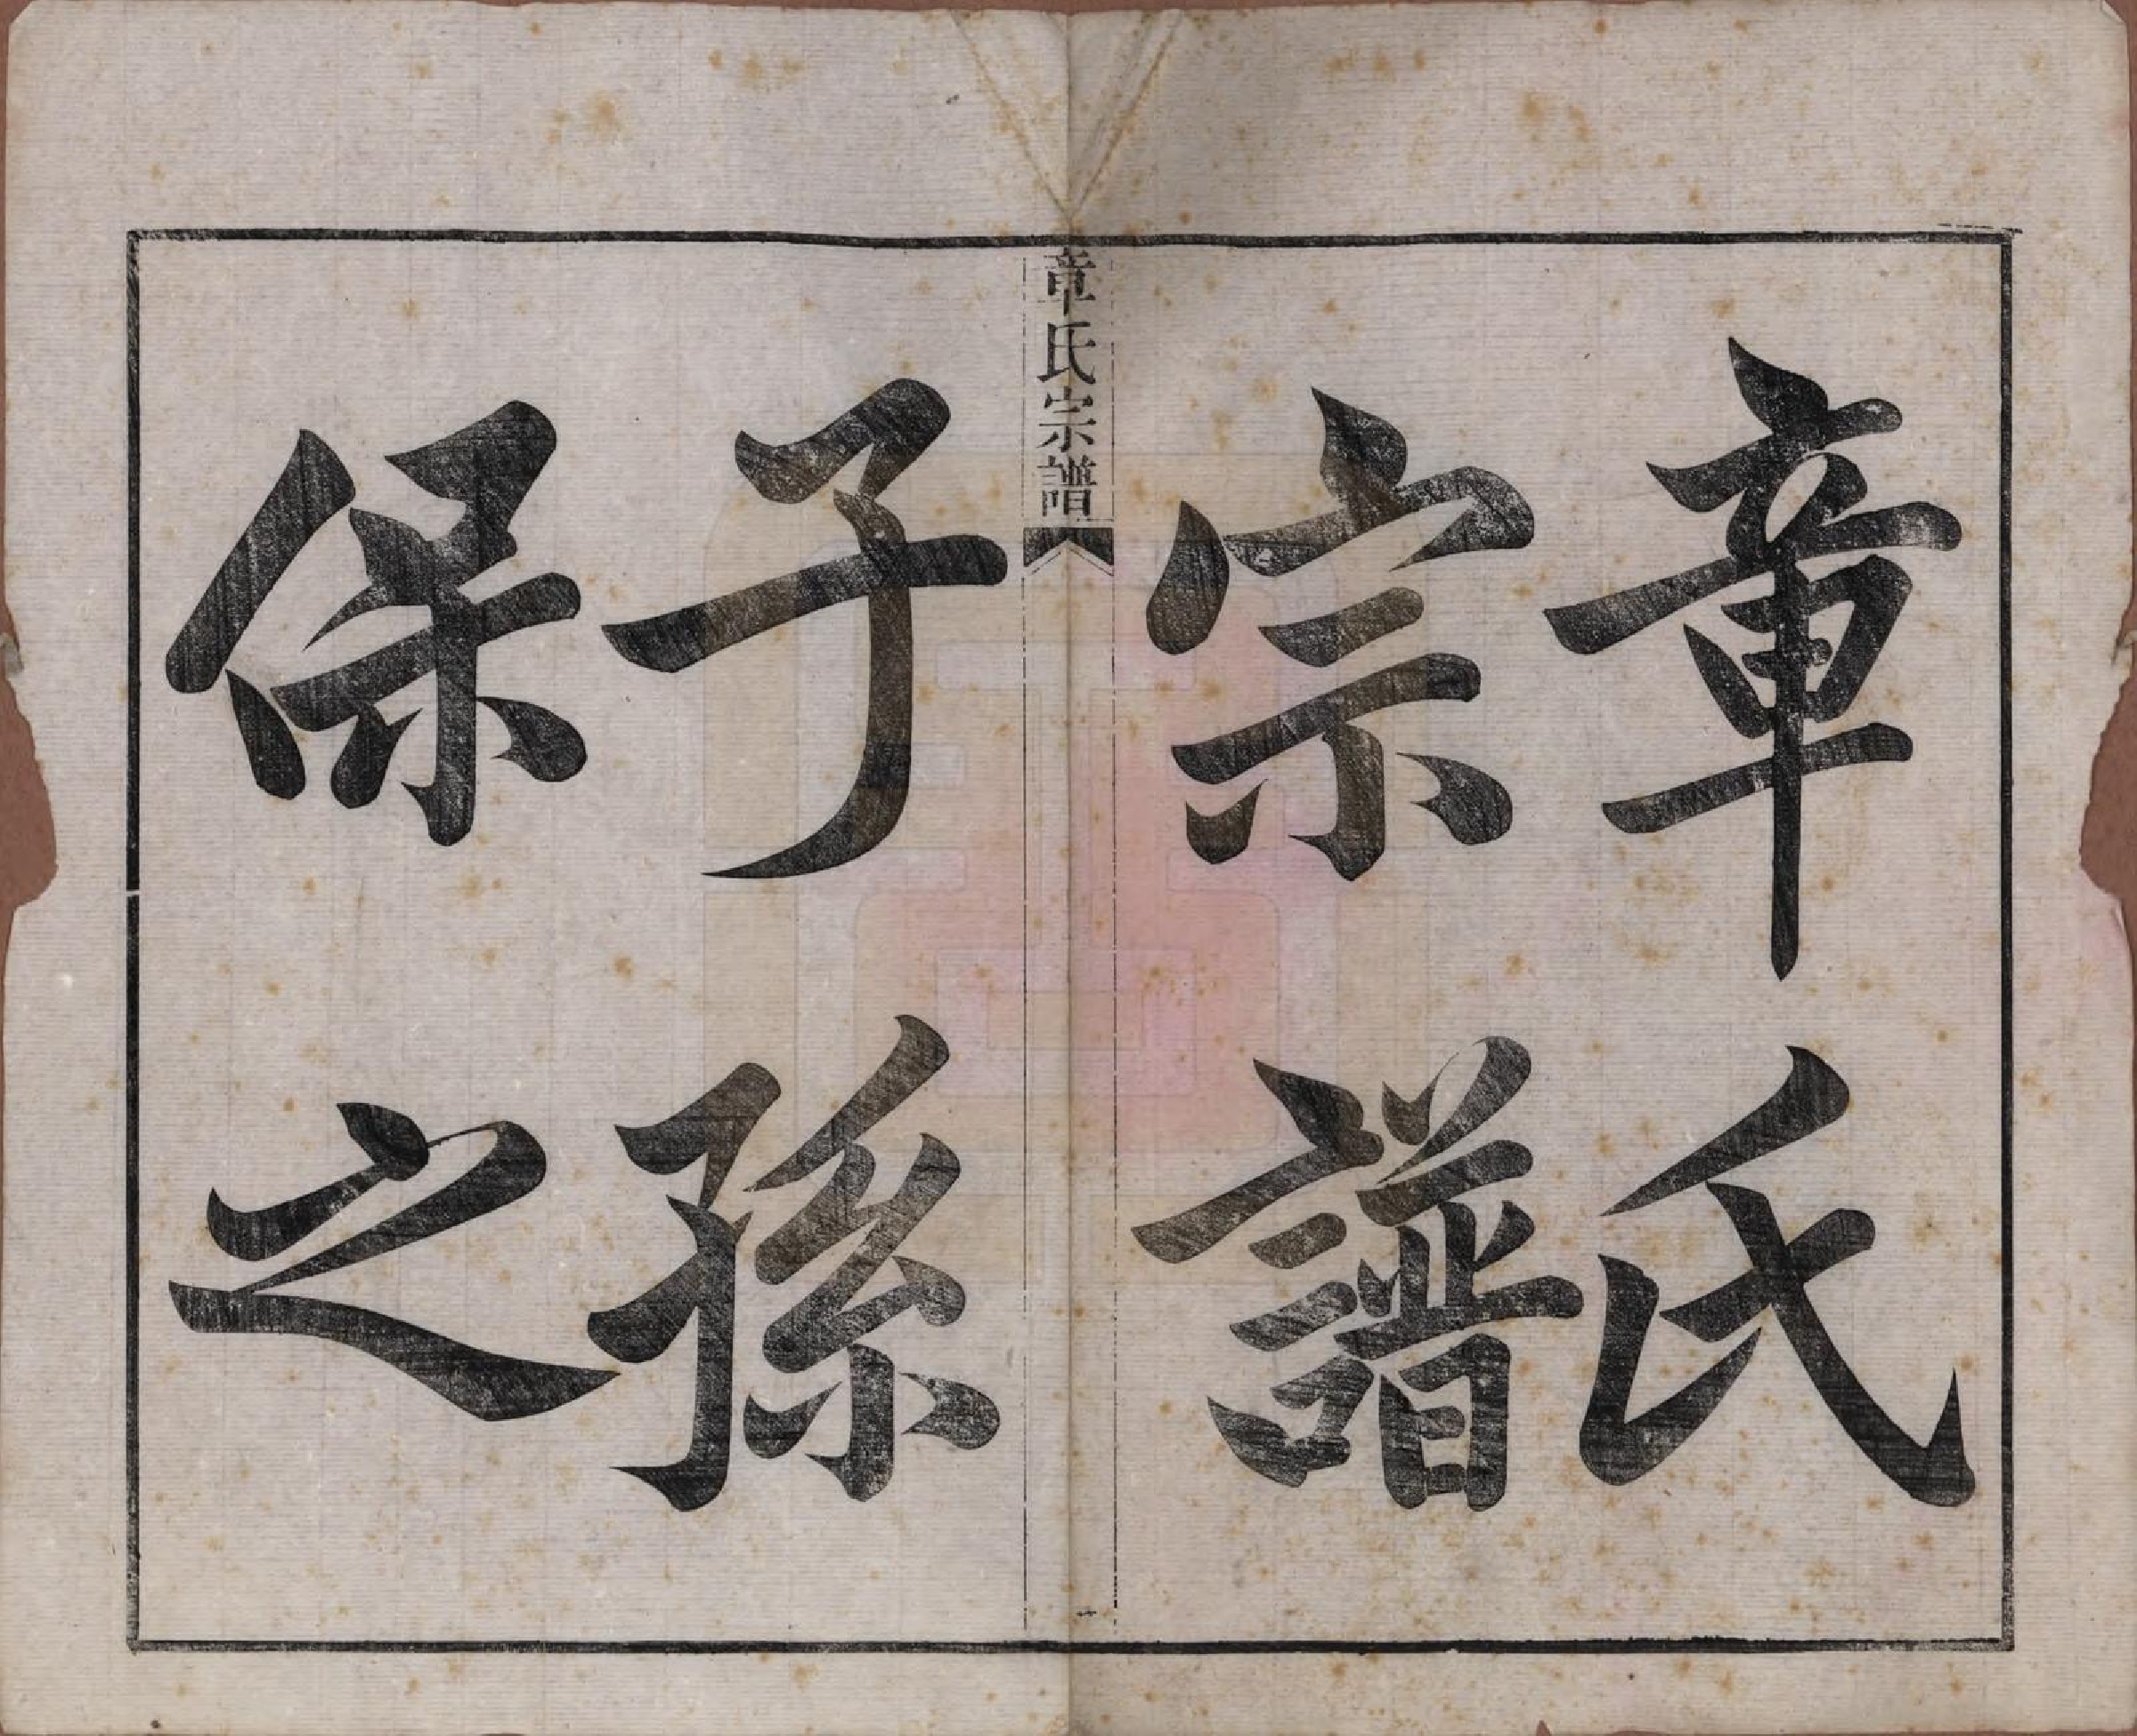 章氏
宗譜
章氏宗譜
子孫
保之